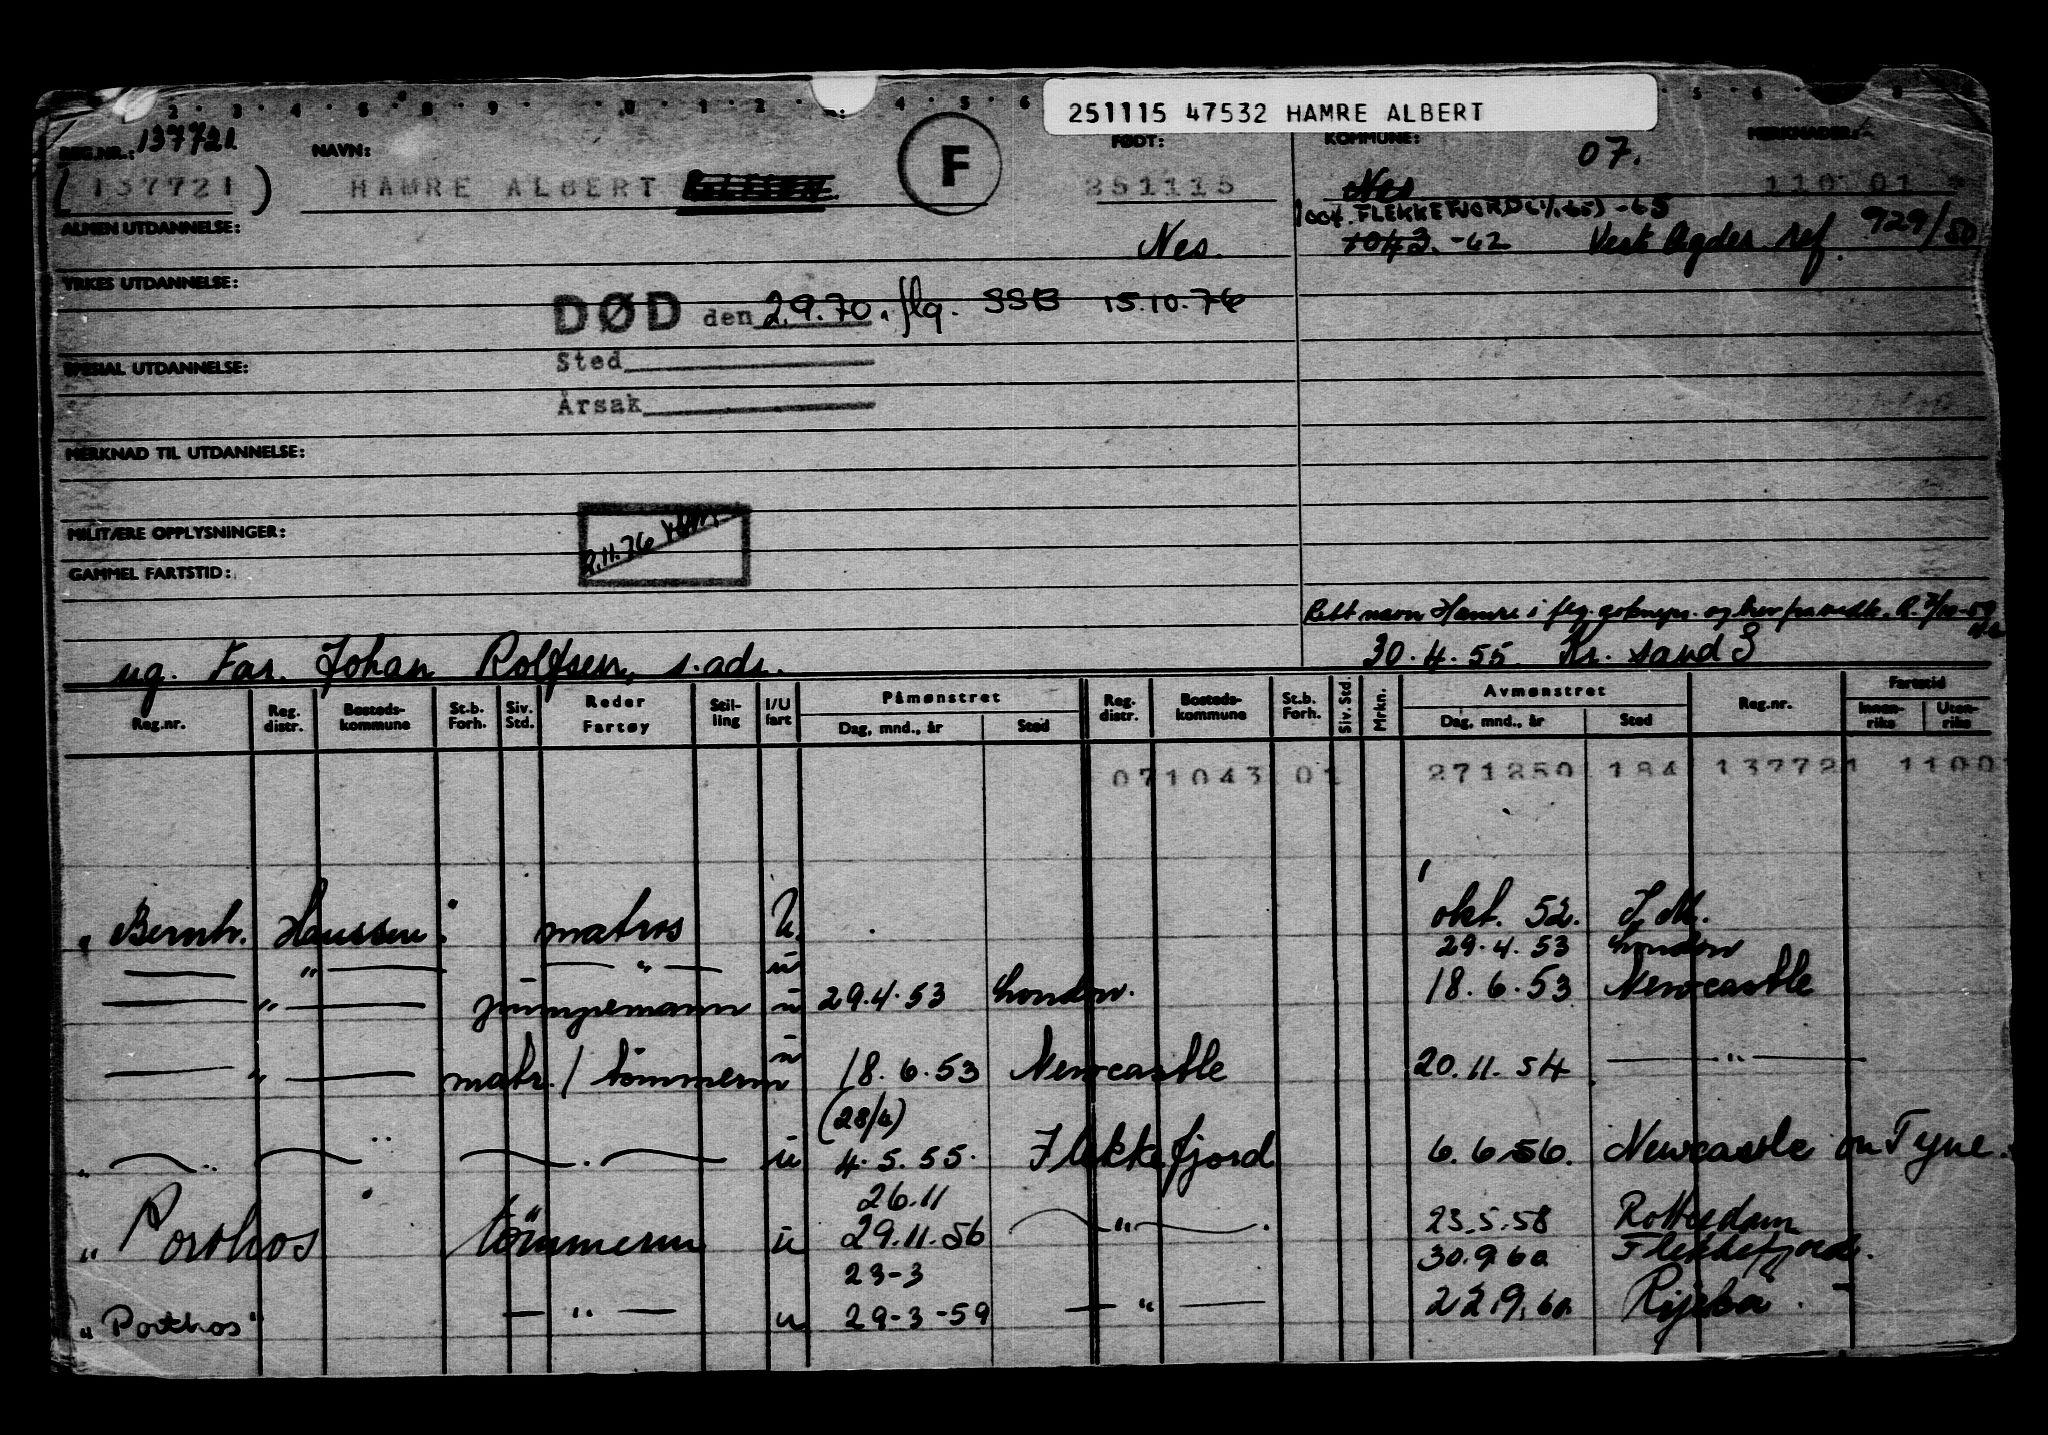 251115 47532 HAMRE ALBERT
REG.NR.: 137721. NAVN: F FØDT: KOMMUNE: 07. MERKNADER:
(137721) HAMRE ALBERT 251115 Nes 110 01
1004. FLEKKEFJORD (1/1-65) -65
ALMEN UTDANNELSE: Nes. 1043. -62 Vest Agder ref. 929/50
YRKES UTDANNELSE:
DØD den 2.9.70. flg. SSB 15.10.76
SPESIAL UTDANNELSE: Sted
Årsak
MERKNAD TIL UTDANNELSE:
MILITÆRE OPPLYSNINGER: 2.11.76
GAMMEL FARTSTID:
Rett navn Hamre i flg.
ug. Far. Johan Rolfsen, s. adr. 30.4.55 Kr. sand S
Reg.nr. Reg. distr. Bosteds-kommune St.b. Forh. Siv. Std. Reder Fartøy Stil-ling I/U fart Påmønstret Dag, mnd., år Sted Reg. distr. Bosteds-kommune St.b. Forh. Siv. Std. Mrkn. Avmønstret Dag, mnd., år Sted Reg.nr. Fartstid Innen-riks Uten-riks
071043 01 271250 184 137721 1100
" Bernh. Hanssen". matros U. okt. 52. I.M.
— " — — " — u 29.4.53 London
— " — pumpemann u 29.4.53 London. 18.6.53 Newcastle
— " — matr. / tømmerm u 18.6.53 Newcastle 20.11.54 — " —
(28/4)
" — " — — . — u 4.5.55. Flekkefjord 6.6.56. Newcastle on Tyne.
26.11
" Porthos " tømmerm u 29.11.56 — " — . 23.5.58 Rotterdam
23-3 30.9.60 Flekkefjord.
" Porthos" — " — u 29-3-59 — " — 22.9.60 Rijeka.